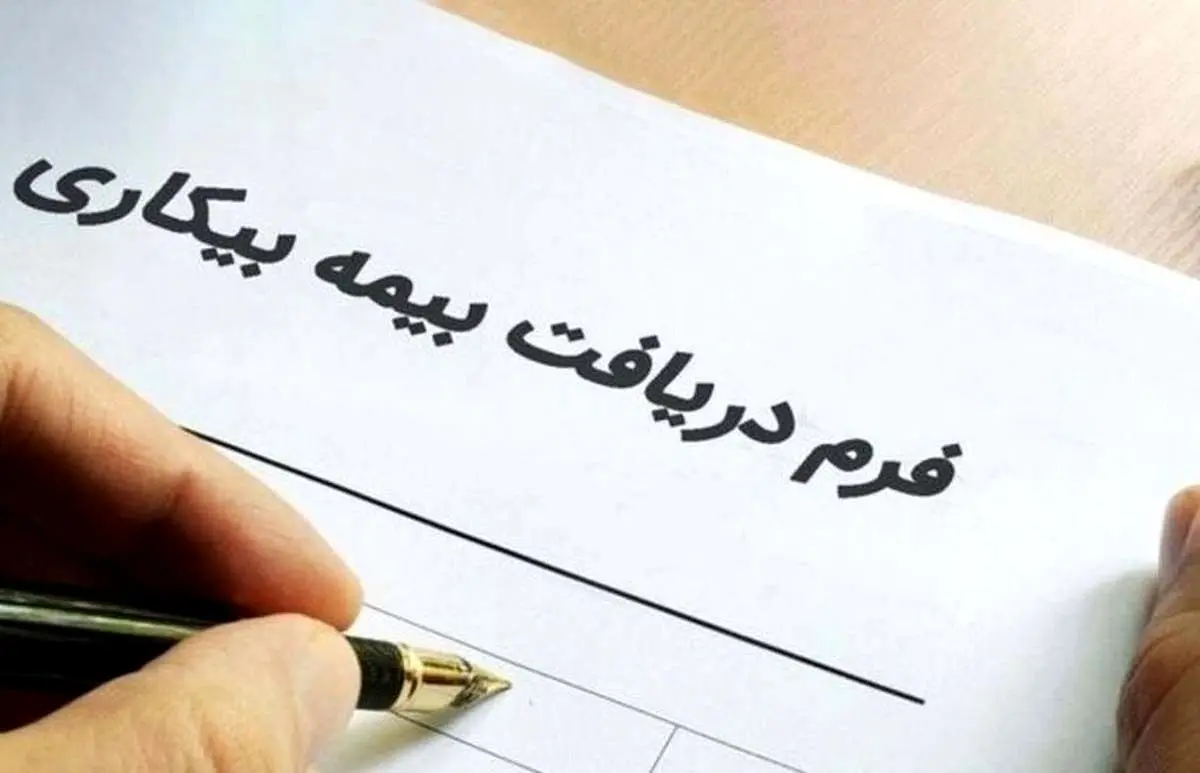 فرم دریافت بیمه بیکاری